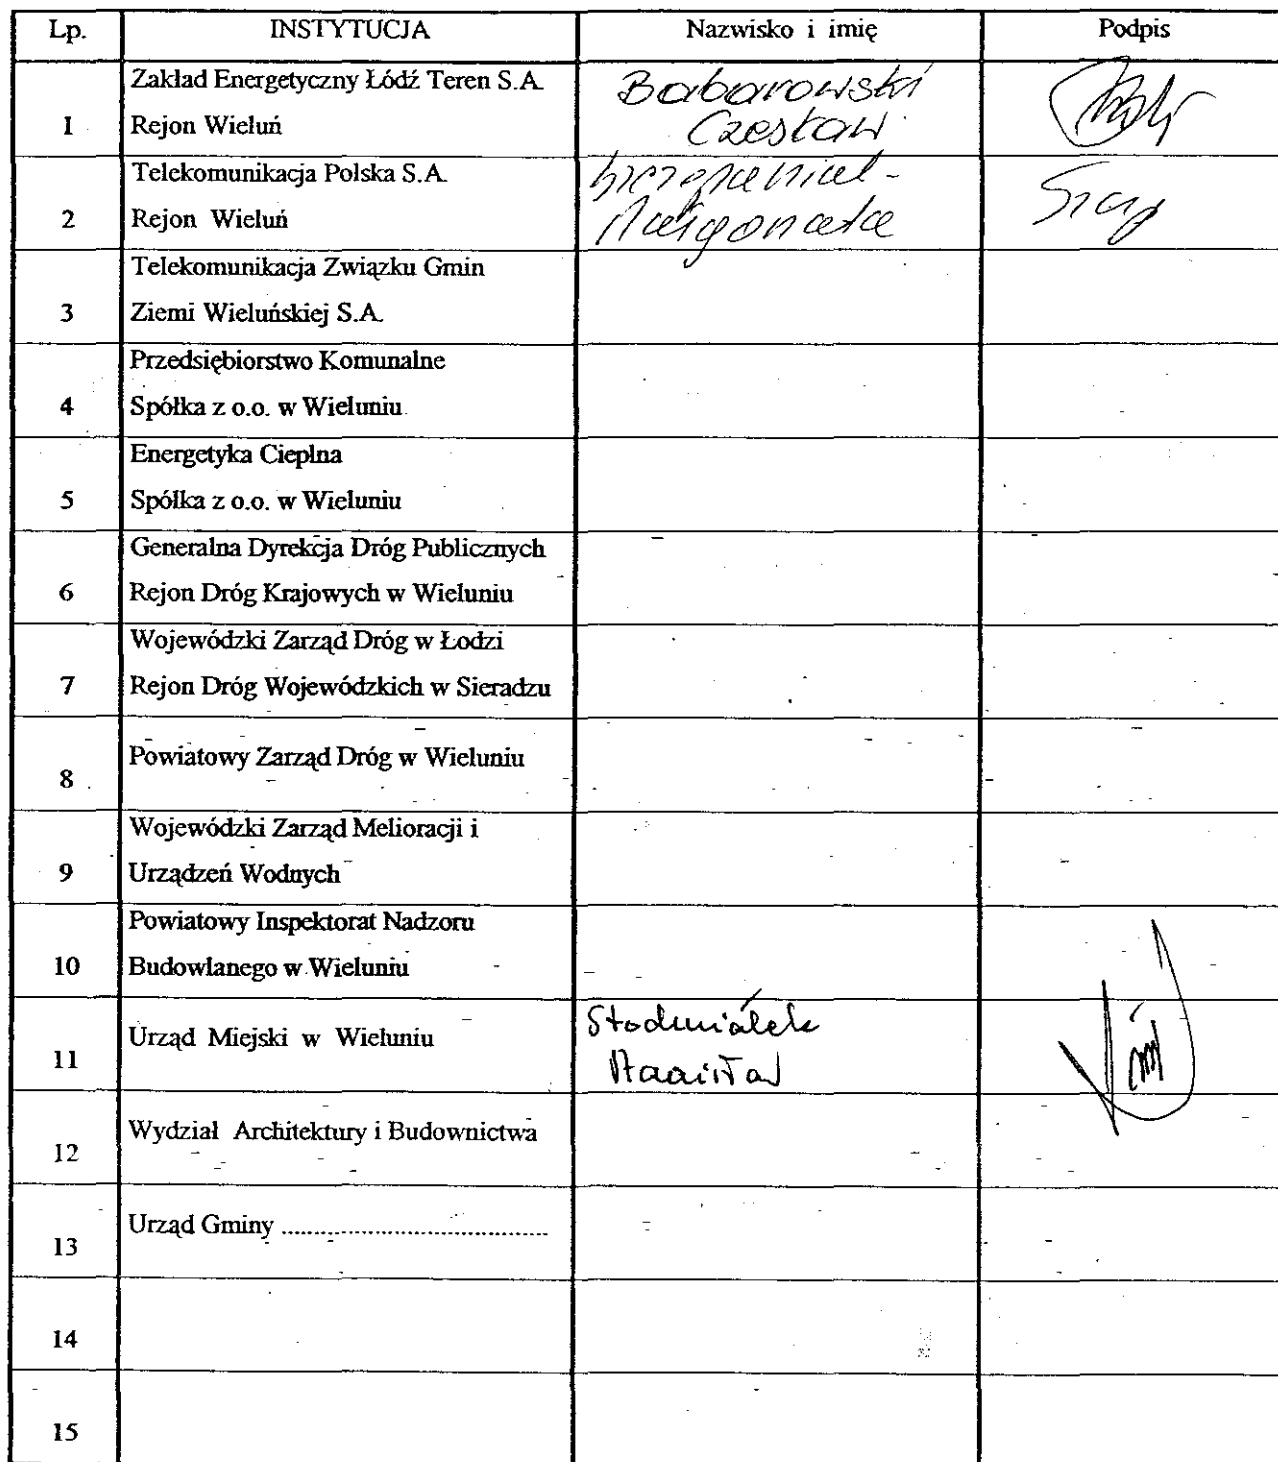 Lp. INSTYTUCJA Nazwisko i imię Podpis
Zakład Energetyczny Łódź Teren S.A. Babarowski
1 Rejon Wieluń Czesław
Telekomunikacja Polska S.A. Szczepaniak -
2 Rejon Wieluń Małgorzata
Telekomunikacja Związku Gmin
3 Ziemi Wieluńskiej S.A.
Przedsiębiorstwo Komunalne
4 Spółka z o.o. w Wieluniu
Energetyka Cieplna
5 Spółka z o.o. w Wieluniu
Generalna Dyrekcja Dróg Publicznych
6 Rejon Dróg Krajowych w Wieluniu
Wojewódzki Zarząd Dróg w Łodzi
7 Rejon Dróg Wojewódzkich w Sieradzu
Powiatowy Zarząd Dróg w Wieluniu
8
Wojewódzki Zarząd Melioracji i
9 Urządzeń Wodnych
Powiatowy Inspektorat Nadzoru
10 Budowlanego w Wieluniu
Urząd Miejski w Wieluniu
11
Wydział Architektury i Budownictwa
12
Urząd Gminy ....................................
13
14
15